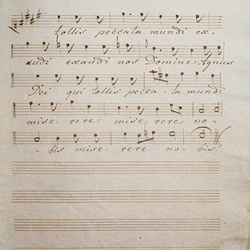 tollis peccata mundi ex,
audi exaudi nos Domine. Agnus
Dei qui tollis pecca, ta mundi
mise, rere mise, rere no,
bis mise, rere no, bis.